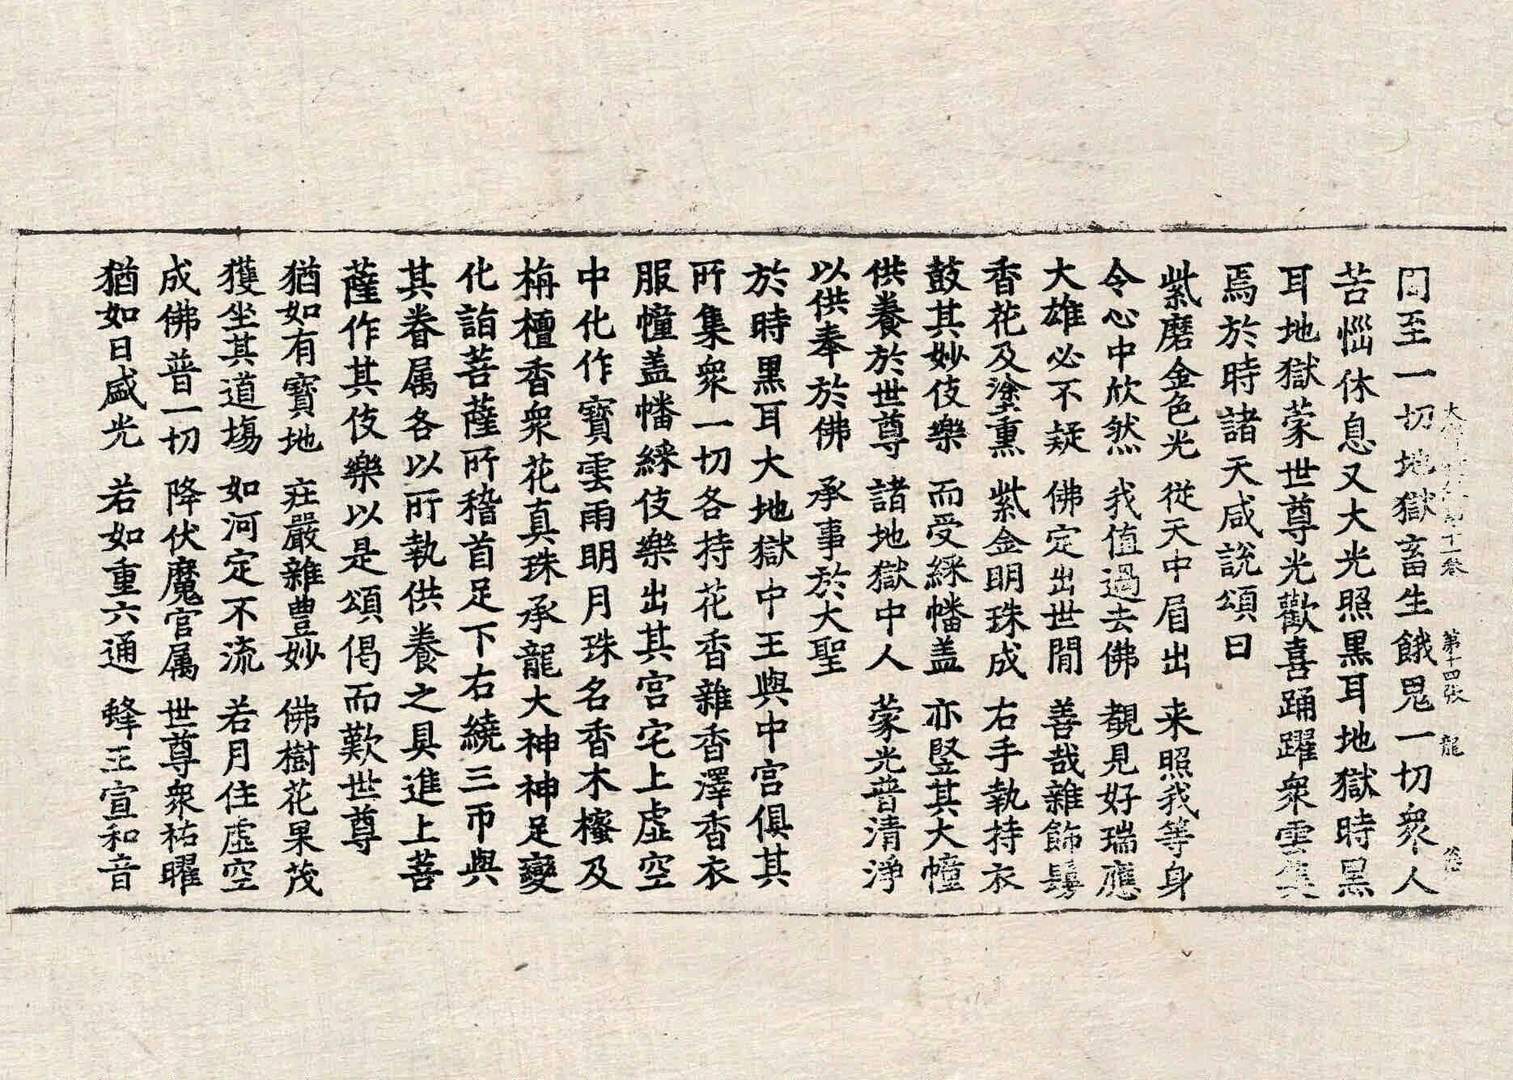 間至一切地獄畜生餓鬼一切衆人
苦惱休息又大光照黑耳地獄時黑
耳地獄蒙世尊光歡喜踊躍衆雲集
焉於時諸天咸說頌曰
紫磨金色光 從天中眉出 来照我等身
令心中欣然 我值過去佛 覩見好瑞應
大雄必不疑 佛定出世間 善哉雜飾鬘
香花及塗熏 紫金明珠成 右手執持衣
鼓其妙伎樂 而受綵幡盖 亦竪其大幢
供養於世尊 諸地獄中人 蒙光普清淨
以供奉於佛 承事於大聖
於時黑耳大地獄中王與中宫俱其
所集衆一切各持花香雜香澤香衣
服幢盖幡綵伎樂出其宫宅上虚空
中化作寶雲雨明月珠名香木櫁及
栴檀香衆花真珠承龍大神神足變
化詣菩薩所稽首足下右繞三帀與
其眷属各以所執供養之具進上菩
薩作其伎樂以是頌偈而歎世尊
猶如有寶地 莊嚴雜豊妙 佛樹花果茂
獲坐其道場 如河定不流 若月住虚空
成佛普一切 降伏魔官属 世尊衆祐曜
猶如日盛光 若如重六通 蜂王宣和音
第十四张 龍